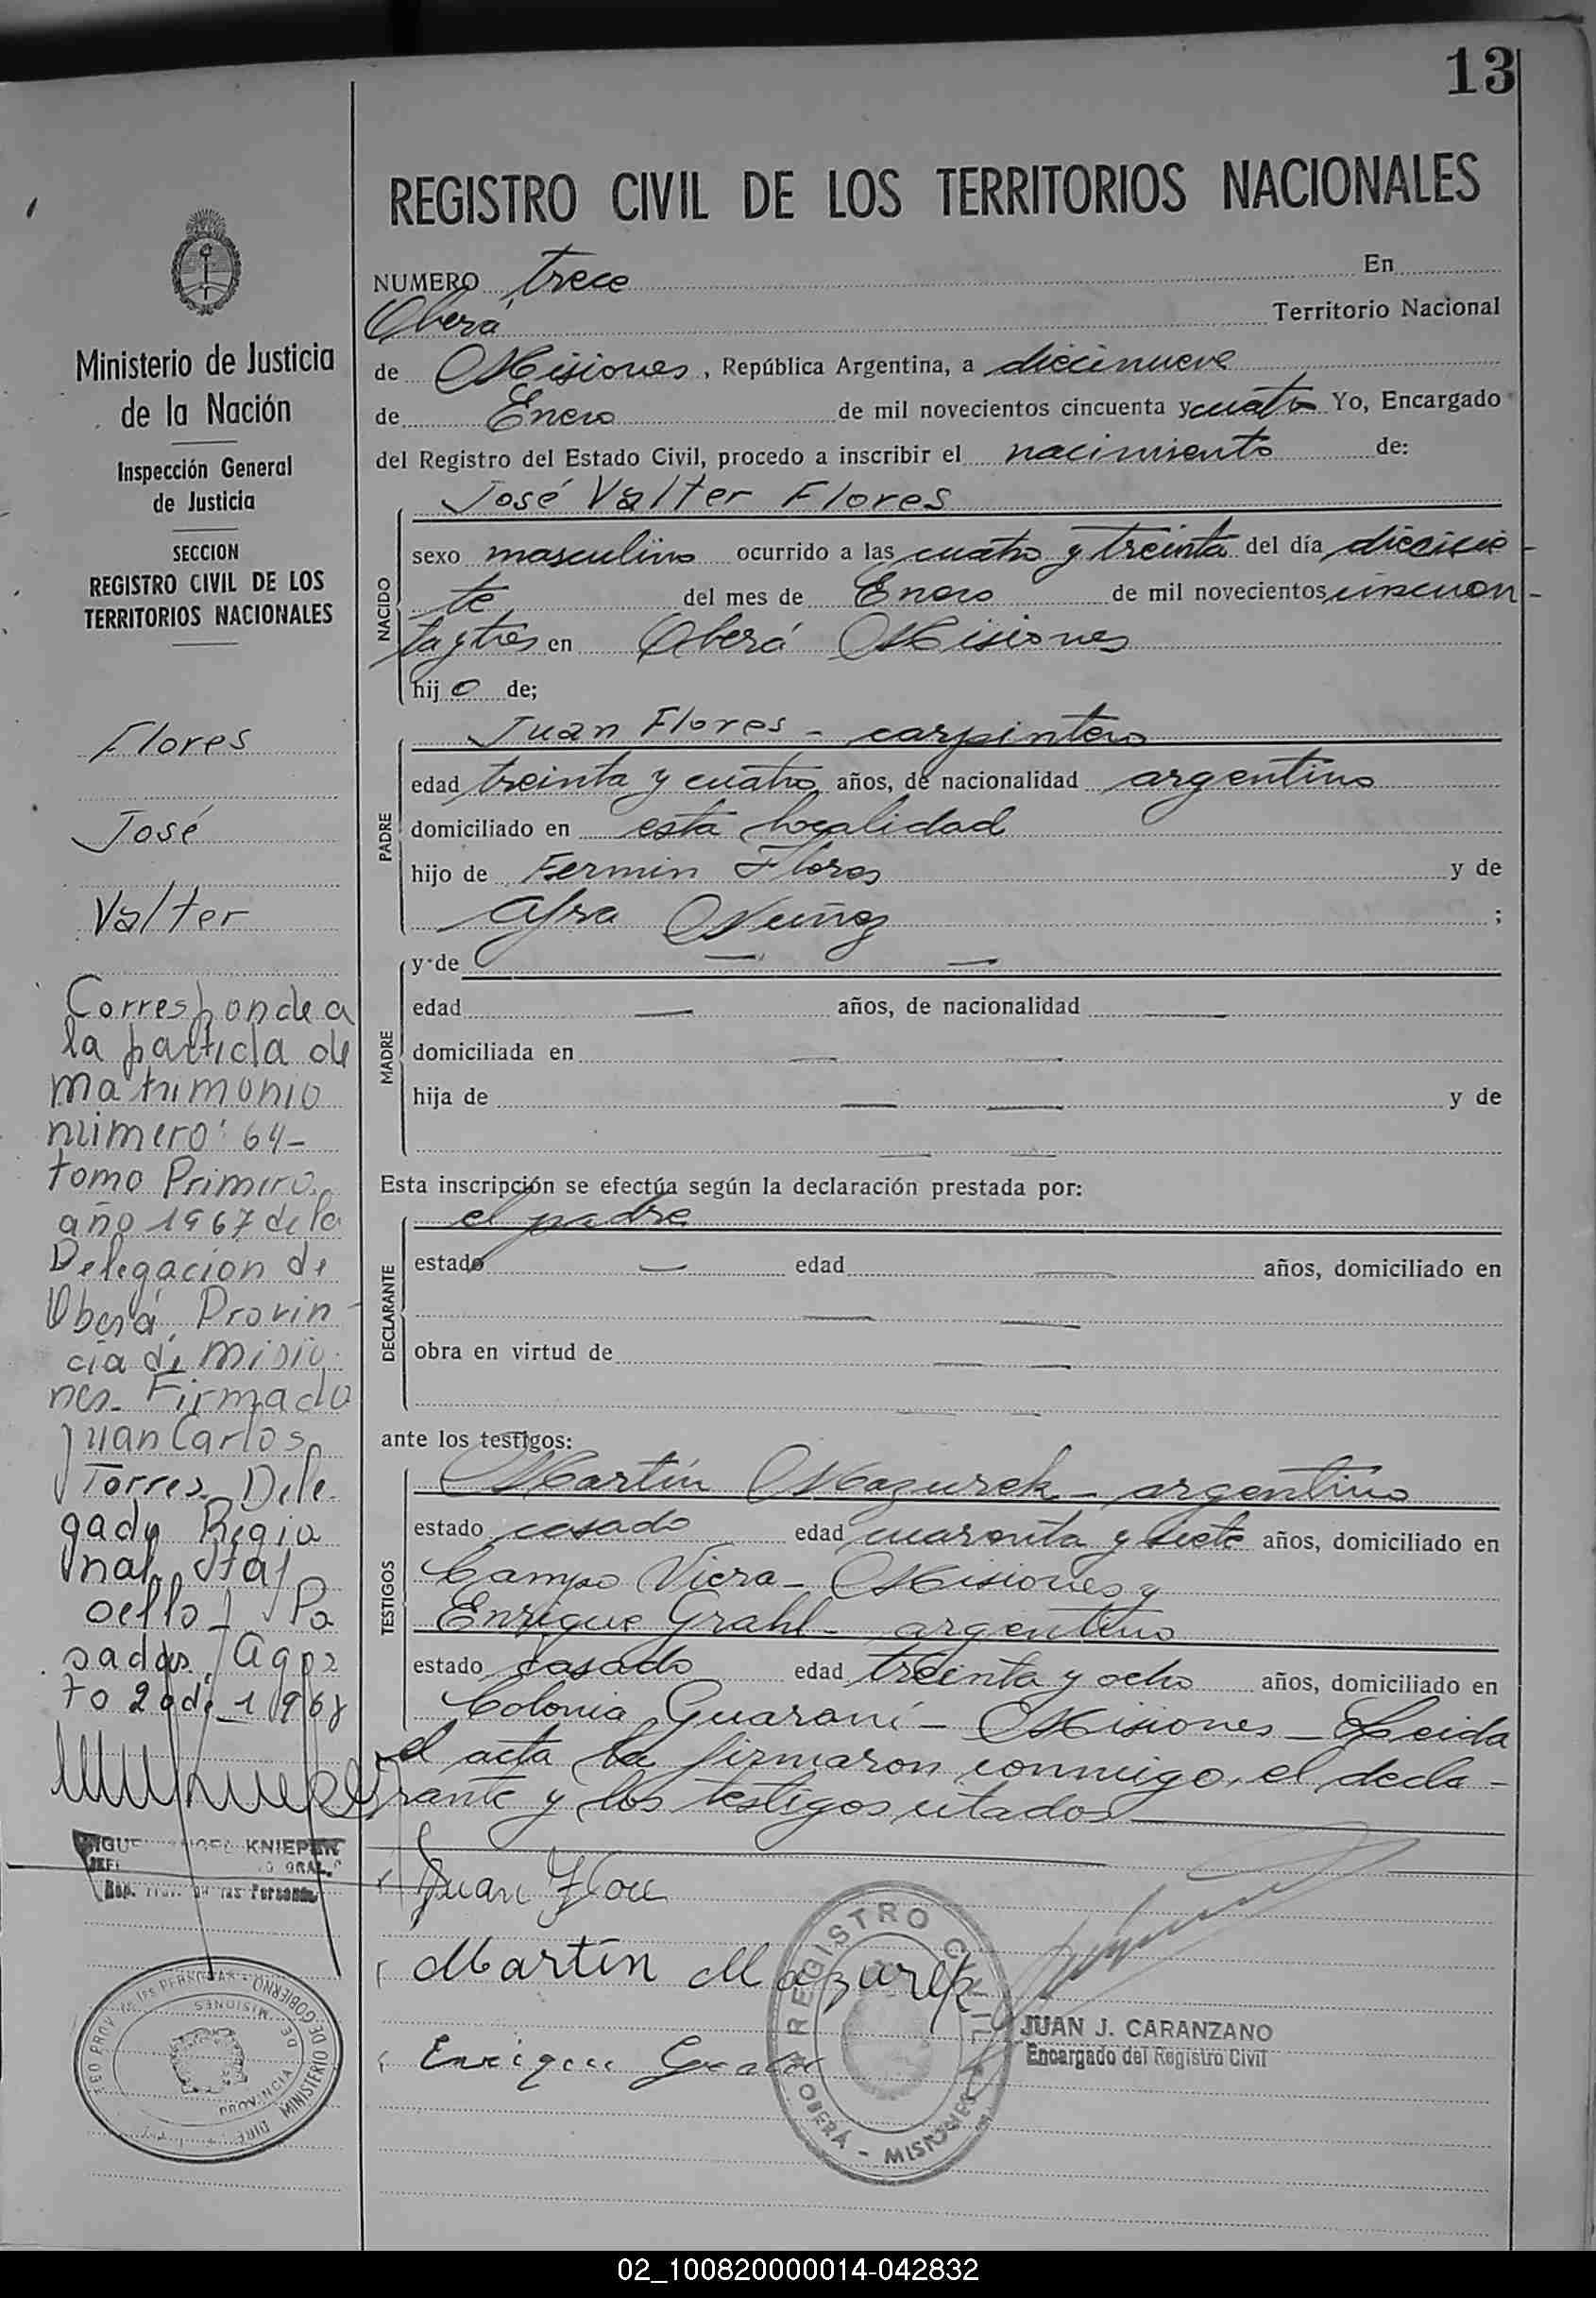 13
REGISTRO CIVIL DE LOS TERRITORIOS NACIONALES
NUMERO trece En
Oberá Territorio Nacional
de Misiones, República Argentina, a diecinueve
de Enero de mil novecientos cincuenta y cuatro Yo, Encargado
del Registro del Estado Civil, procedo a inscribir el nacimiento de:
NACIDO
José Valter Flores
sexo masculino ocurrido a las cuatro y treinta del día diecisie-
te del mes de Enero de mil novecientos cincuen-
ta y tres en Oberá Misiones
hijo de;
PADRE
Juan Flores - carpintero
edad treinta y cuatro años, de nacionalidad argentino
domiciliado en esta localidad
hijo de Fermin Flores y de
Afra Nuñez ;
MADRE
y de — —
edad — años, de nacionalidad —
domiciliada en — —
hija de — — y de
— —
Esta inscripción se efectúa según la declaración prestada por:
DECLARANTE
el padre
estado — edad — años, domiciliado en
— —
obra en virtud de — —
— —
ante los testigos:
TESTIGOS
Martín Mazurek - argentino
estado casado edad cuarenta y siete años, domiciliado en
Campo Viera - Misiones y
Enrique Grahl - argentino
estado casado edad treinta y ocho años, domiciliado en
Colonia Guaraní - Misiones - Leida
el acta la firmaron conmigo, el decla-
rante y los testigos citados
Juan Flores
Martín Mazurek
Enrique
REGISTRO CIVIL
OBERÁ - MISIONES
JUAN J. CARANZANO
Encargado del Registro Civil
Ministerio de Justicia
de la Nación
Inspección General
de Justicia
SECCION
REGISTRO CIVIL DE LOS
TERRITORIOS NACIONALES
Flores
José
Valter
Corresponde a
la partida de
matrimonio
número: 64-
tomo Primero
año 1967 de la
Delegacion de
Oberá, Provin-
cia de Misio-
nes- Firmado
Juan Carlos
Torres Dele-
gado Regio
nal
sello - Po
sadas, Agos
to 2 de 1968
KNIEPER
de las Personas
MINISTERIO DE GOBIERNO
PROVINCIA DE MISIONES
02_100820000014-042832